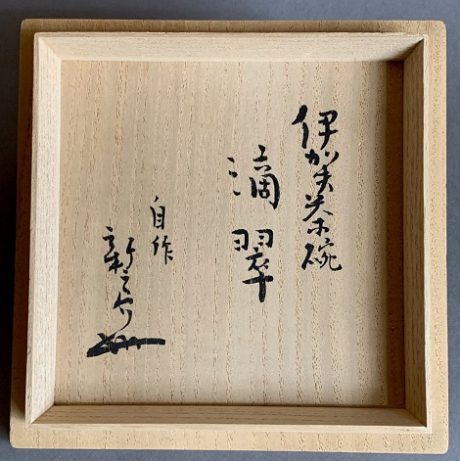 伊賀茶碗
滴翠
自作
新之介